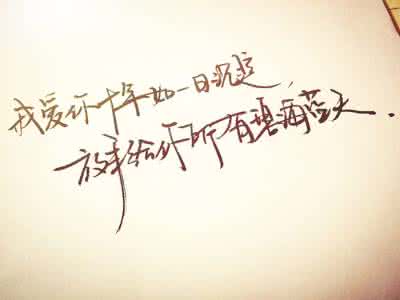 我爱你十年如一日沉迷,
放手给你所有碧海蓝天.